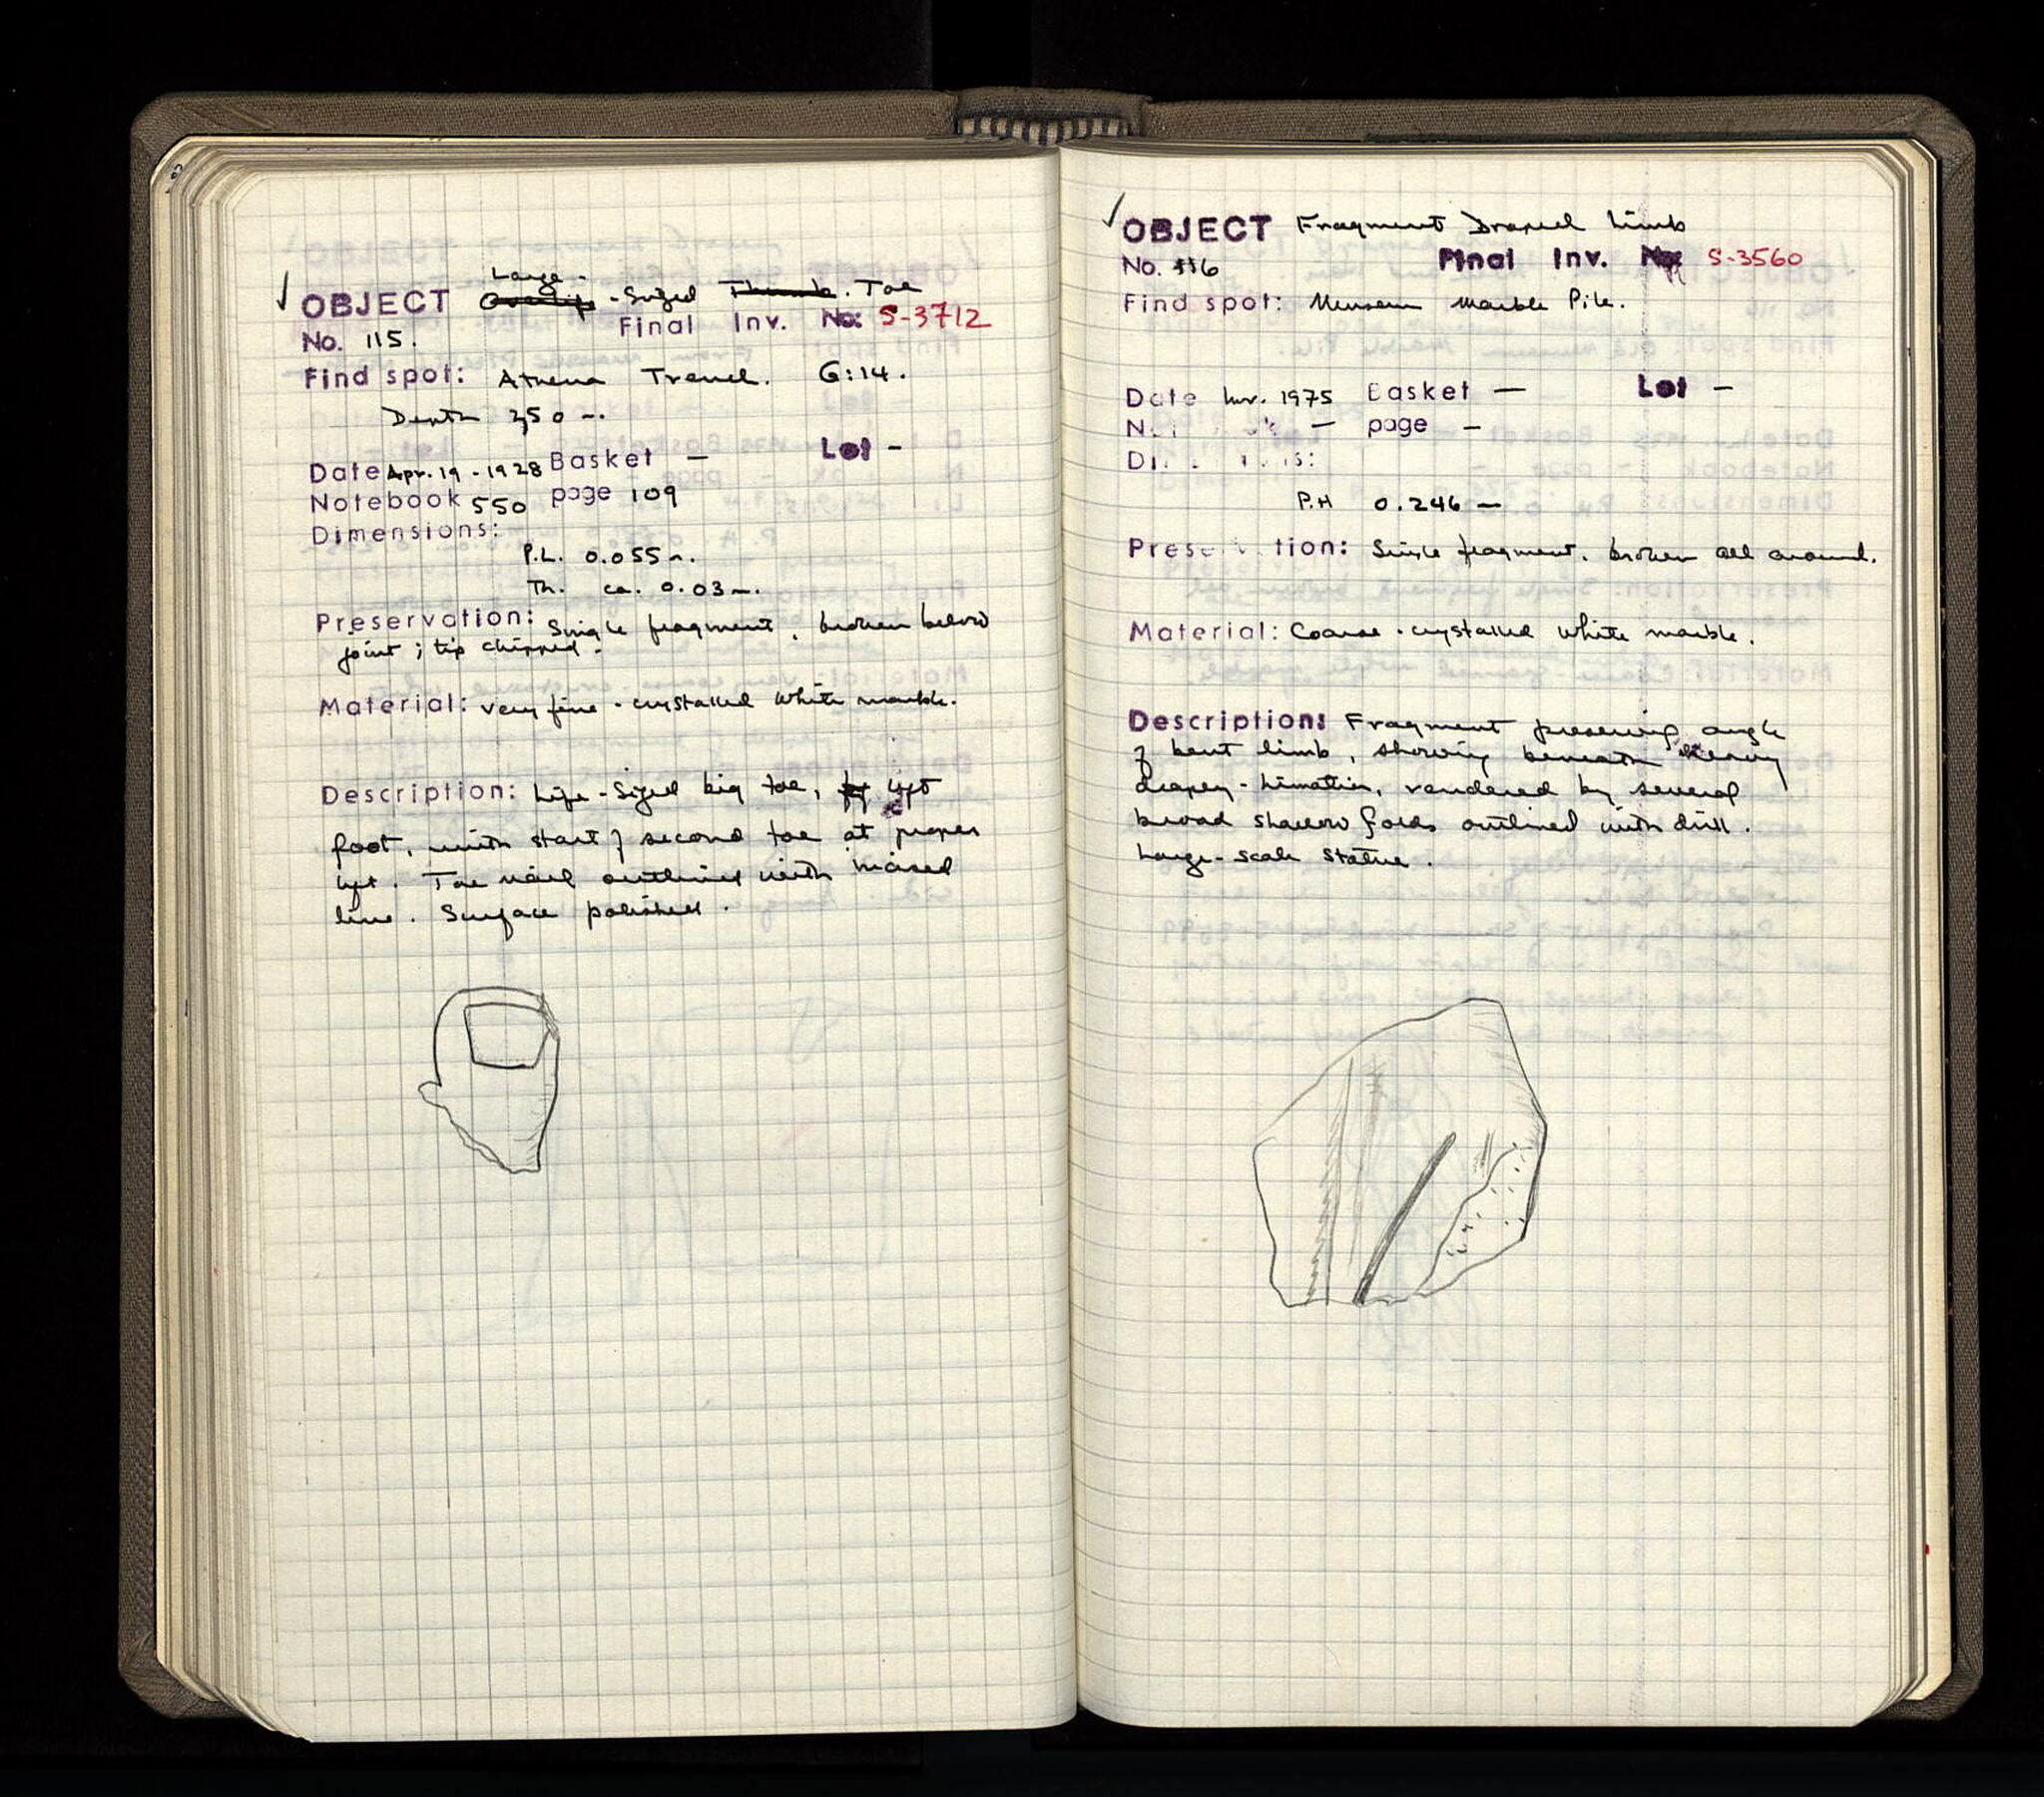 Large-
OBJECT Over life -Sized Thumb. Toe
Final Inv. No: S-3712
No. 115.
Find spot: Athena Trench. G:14.
Depth 2,50 m.
Lot -
Date Apr. 19 - 1928 Basket —
Notebook 550 page 109
Dimensions:
P.L. 0.055 m.
Th. ca. 0.03 m.
Preservation: Single fragment, broken below
joint; tip chipped.
Material: very fine-crystalled white marble.
Description: Life-sized big toe, left
foot, with start of second toe at proper
left. Toe nail outlined with incised
line. Surface polished.
OBJECT Fragment Draped Limb
Final Inv. No: S-3560
No. 116
Find spot: Museum Marble Pile.
Date Inv. 1975 Basket — Lot -
page -
P.H 0.246 m
Preservation: Single fragment. broken all around.
Material: Coarse-crystalled white marble.
Description: Fragment preserving angle
of bent limb, showing beneath heavy
drapery - himation, rendered by several
broad shallow folds outlined with drill.
Large-scale statue.